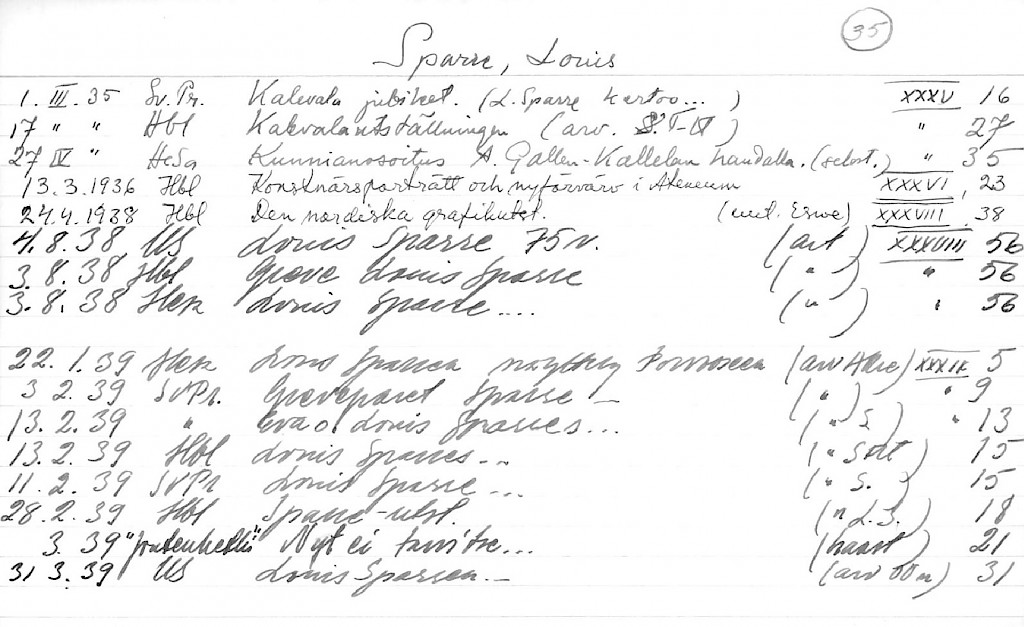 35
Sparre, Louis
1. III. 35 Sv.Pr. Kalevala jubileet. (L. Sparre kertoo...) XXXV 16
17 " " Hbl Kalevalautställningen (arv. S. T-U) " 27
27 IV " HeSa Kunnianosoitus A. Gallen-Kallelan haudalla. (selost.) " 35
13.3.1936 Hbl Konstnärsporträtt och nyförvärv i Ateneum XXXVI, 23
24.4.1938 Hbl Den nordiska grafikutst. (unt. Erwe) XXXVIII. 38
4.8.38 US Louis Sparre 75 v. (art) XXXVIII 56
3.8.38 Hbl Greve Louis Sparre ( " ) " 56
3.8.38 Louis Sparre.... ( " ) " 56
22.1.39 Louis Sparren näyttely (arv) XXXIX 5
3 2.39 SvPr. Greveparet Sparre – ( " ) " 9
13.2.39 " Eva o Louis Sparres... ( " S. ) " 13
13.2.39 Hbl Louis Sparres... ( " ) 15
11.2.39 SvPr Louis Sparre... ( " S. ) 15
28.2.39 Hbl Sparre-utst. ( " L.S. ) 18
3.39 Nyt ei tarvitse... (haast) 21
31 3.39 US Louis Sparren... (arv) 31